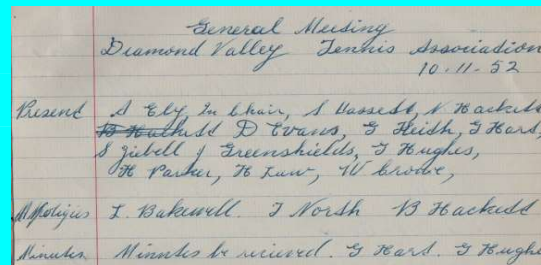 General Meeting
Diamond Valley Tennis Association
10-11-52
Present S Ely In Chair, S Hassett, N Hackett
B Hackett D Evans, G Keith, G Hart,
S Ziebell J Greenshields, G Hughes,
H Parker, H Law, W Crowe,
Apologies I. Bakewell. J North B Hackett
Minutes Minutes be recieved. G Hart. G Hughe